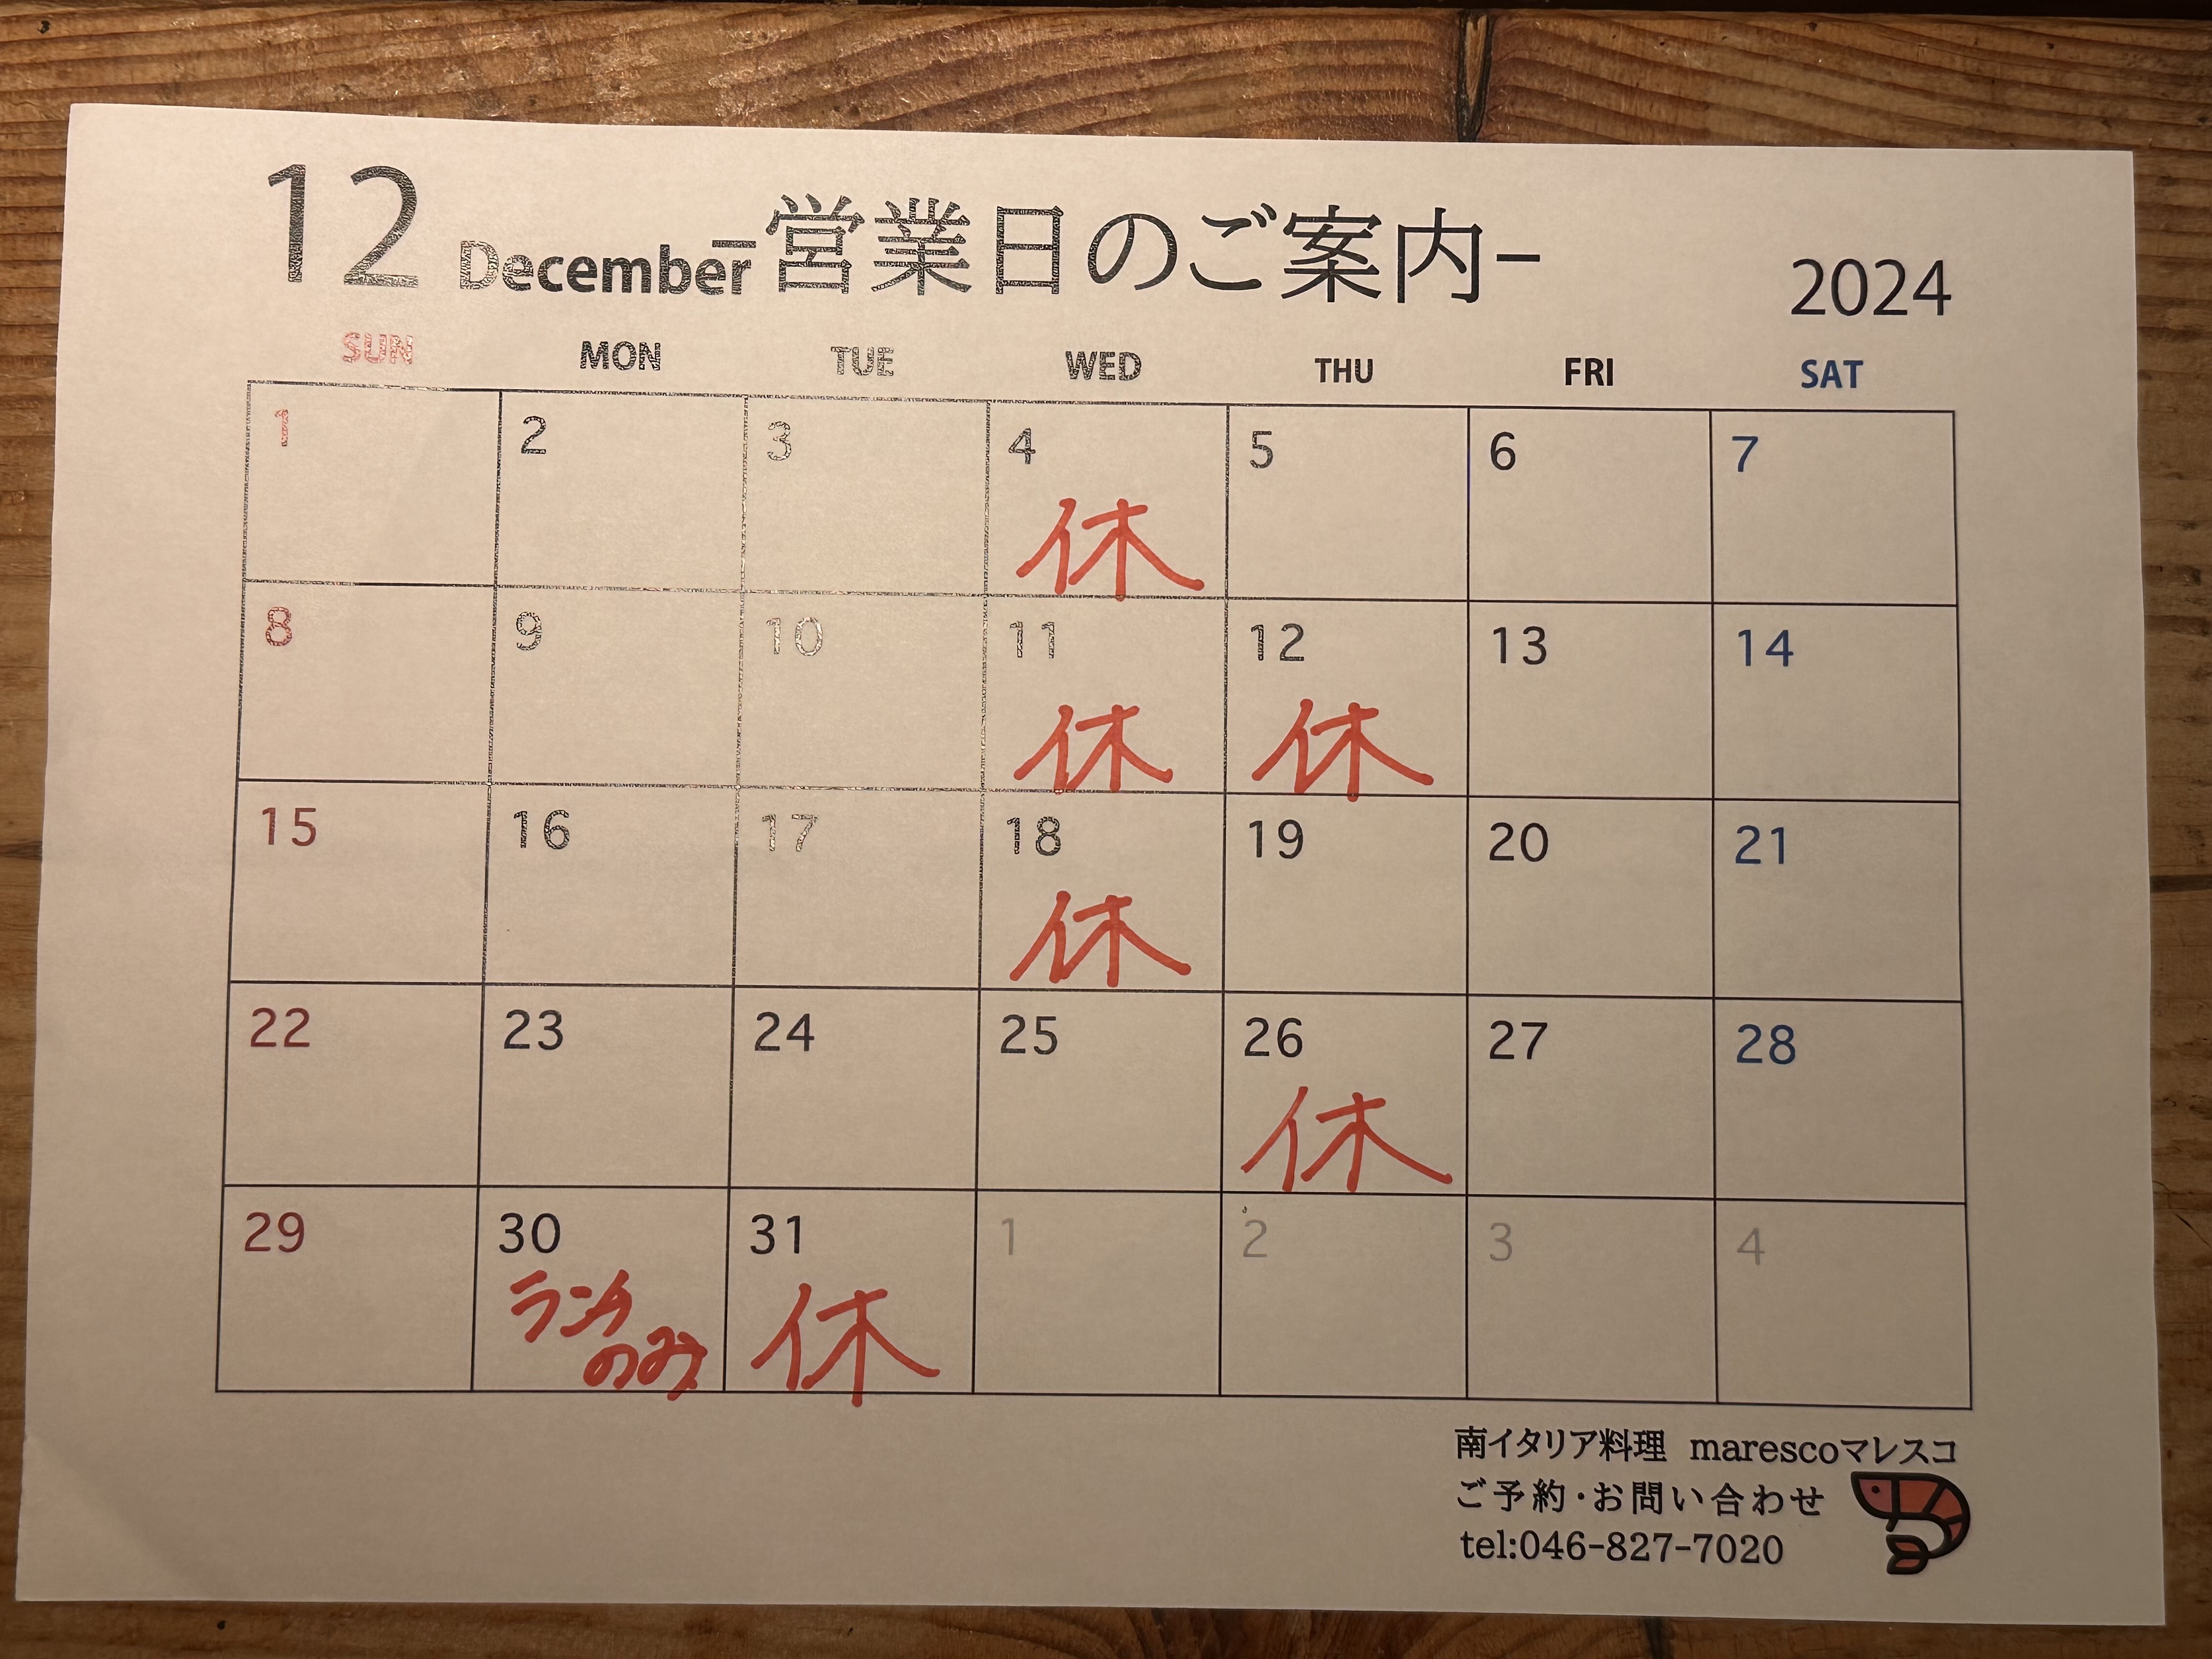 12 December -営業日のご案内- 2024
SUN MON TUE WED THU FRI SAT
1 2 3 4 5 6 7
休
8 9 10 11 12 13 14
休 休
15 16 17 18 19 20 21
休
22 23 24 25 26 27 28
休
29 30 31 1 2 3 4
ランチ 休
のみ
南イタリア料理 marescoマレスコ
ご予約・お問い合わせ
tel:046-827-7020